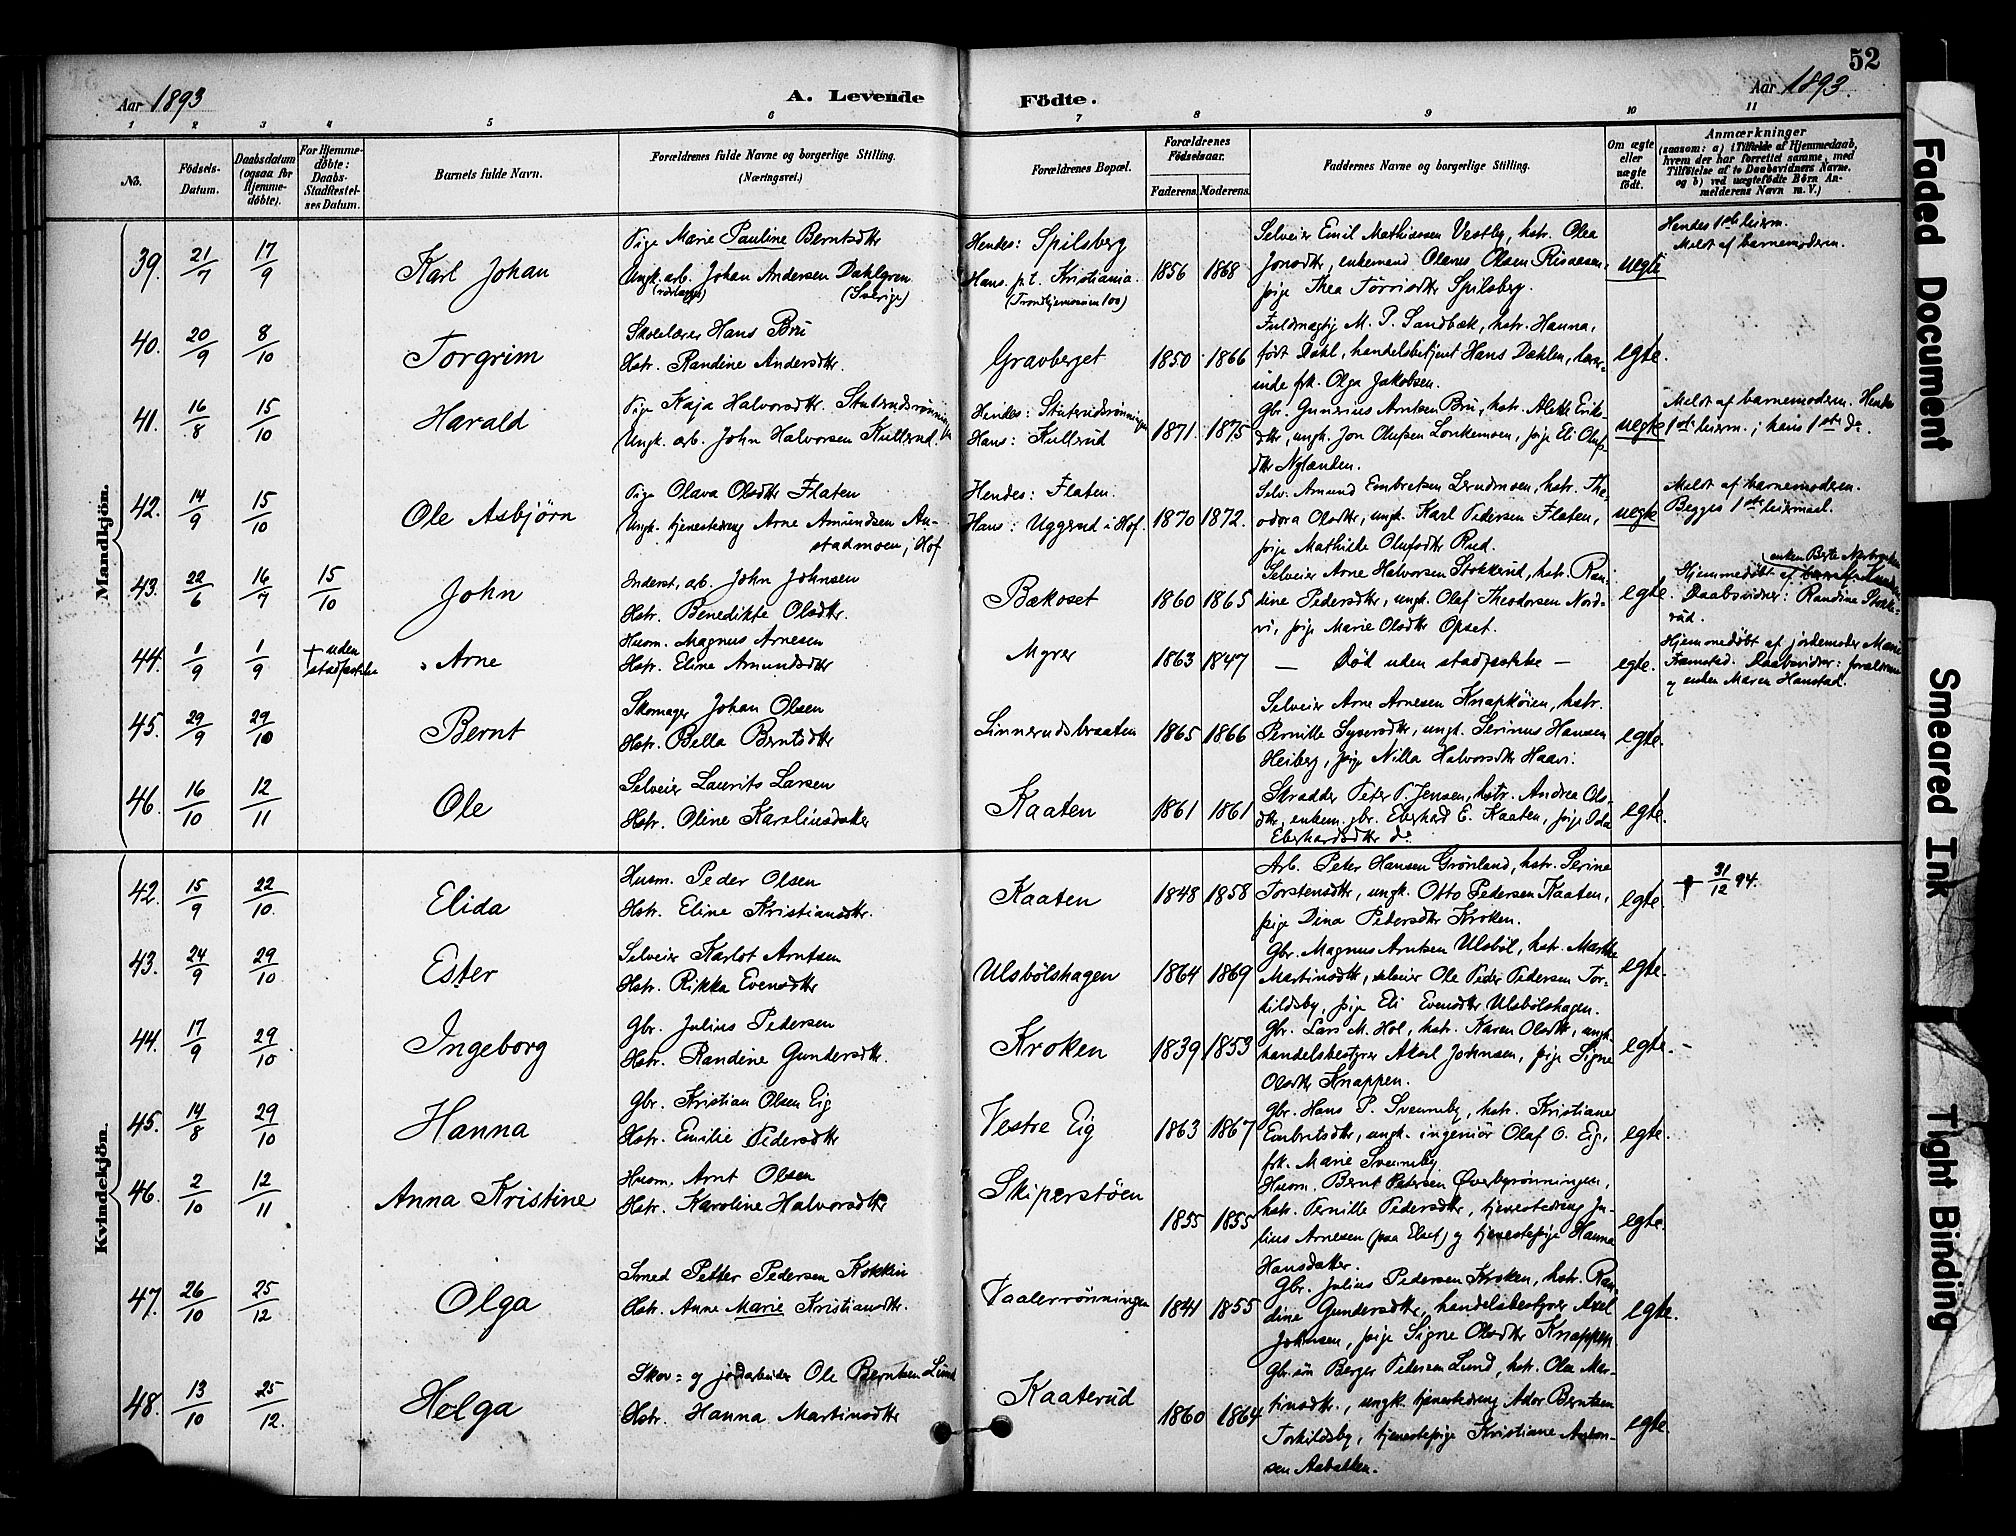 52
Aar 1893
A. Levende Födte.
Aar 1893.
1 2 3 4 5 6 7 8 9 10 11
No.
Födsels-Datum.
Daabsdatum (ogsaa for Hjemme-döbte).
For Hjemme-döbte: Daabs-Stadfæstelses Datum.
Barnets fulde Navn.
Forældrenes fulde Navne og borgerlige Stilling. (Næringsvei.)
Forældrenes Bopæl.
Forældrenes Födselsaar.
Faderens. Moderens.
Faddernes Navne og borgerlige Stilling.
Om ægte eller uægte födt.
Anmærkninger
(saasom: a) i Tilfælde af Hjemmedaab, hvem der har forrettet samme, med Tilföielse af to Daabsvidners Navne, og b) ved uægtefödte Börn Anmelderens Navn m. V.)
Mandkjön.
39. 21/7 17/9 Karl Johan
Pige Marie Pauline Berntsdtr
Ungk. arb. Johan Andersen Dahlgren
(Sverige)
Hendes: Spilsberg
Hans p.t. Kristiania.
1856 1868
Selveier Emil Mathiassen Vestby, hstr. Olea
Jonsdtr, enkemand Olaves Olsen Risaasen,
pige Thea Torrisdtr Spilsberg.
uegte
Hendes 1ste leierm.
Meldt af barnemoderen.
40. 20/9 8/10 Torgrim
Skolelærer Hans Bru
Hstr. Randine Andersdtr.
Gravberget 1850 1866
Fuldmægtig M. P. Sandbæk, hstr. Hanna,
født Dahl, handelsbetjent Hans Dahlen, lærer-
inde frk. Olga Jakobsen.
egte.
41. 16/8 15/10 Harald
Pige Kaja Halvorsdtr. Stuterudsrønningen
Ungk. arb. John Halvorsen Kullerud.
Hendes: Stuterudsrønningen
Hans: Kullerud
1871. 1875
Gbr. Gunerius Arntsen Bru, hstr. Alette Eriks-
dtr, ungk. Jon Olufsen Lonkemoen, pige Eli Oluf-
dtr Nylænden.
uegte
Meldt af barnemoderen. Hendes
1ste leierm.; hans 1ste do
42. 14/9 15/10 Ole Asbjørn
Pige Olava Olsdtr Flaten
Ungk. tjenestedreng Arne Amundsen An-
stadmoen, Hof
Hendes: Flaten.
Hans: Uggerud i Hof.
1870 1872.
Selv. Amund Embretsen Lerudmoen, hstr. The-
odora Olsdtr, ungk. Karl Pedersen Flaten,
pige Mathilde Olufsdtr Rud.
uegte
Meldt af barnemoderen.
Begges 1ste leiermaal.
43. 22/6 16/7 15/10 John
Inderst, arb. John Johnsen
Hstr. Benedikte Olsdtr.
Bækoset 1860 1865
Selveier Arne Halvorsen Stokkerud, hstr. Ran-
dine Pedersdtr, ungk. Olaf Theodorsen Nord-
vi, pige Marie Olsdtr Opset.
egte
Hjemmedøbt af
Daabsvidner: Randine Stokke-
rud.
44. 1/9 1/9 † uden stadfæstelse Arne
Husm. Magnus Arnesen
Hstr. Eline Amundsdtr
Myrer 1863 1847
— Död uden stadfæstelse — egte.
Hjemmedøbt af jordemoder Marie
Framstad. Daabsvidner: forældrene
og enken Maren Hanstad.
45. 29/9 29/10 Bernt
Skomager Johan Olsen
Hstr. Bella Berntsdtr
Linnerudsbraaten 1865 1866
Selveier Arne Arnesen Knapkøien, hstr.
Pernille Syversdtr, ungk. Serinus Hansen
Heiberg, pige Nilla Halvorsdtr Haavi.
egte.
46. 16/10 12/11 Ole
Selveier Laurits Larsen
Hstr. Oline Karolinusdatter
Kaaten 1861 1861
Skrædder Peter P. Jensen, hstr. Andrea Ols-
dtr, enkem. gbr. Eberhard E. Kaaten, pige Oda
Eberhardsdtr do
egte.
Kvindekjön.
42. 15/9 22/10. Elida
Husm. Peder Olsen
Hstr. Eline Kristiansdtr.
Kaaten 1848 1858
Arb. Peter Hansen Grönland, hstr. Serine
Torstensdtr, ungk. Otto Pedersen Kaaten,
pige Dina Pedersdtr Kroken.
egte.
† 31/12 94.
43. 24/9 29/10 Ester
Selveier Karlot Arntsen
Hstr. Rikka Evensdtr
Ulsbölshagen 1864 1869
Gbr. Magnus Arntsen Ulsböl, hstr. Marthe
Martinsdtr, selveier Ole Peder Pedersen Tor-
kildsby, pige Eli Evensdtr Ulsbölshagen.
egte.
44. 17/9 29/10 Ingeborg
Gbr. Julius Pedersen
Hstr. Randine Gundersdtr.
Kroken 1839 1853
Gbr. Lars M. Hol, hstr. Karen Olsdtr, ungk.
handelsbestyrer Aksel Johnsen, pige Signe
Olsdtr Knappen.
egte.
45. 14/8 29/10 Hanna
Gbr. Kristian Olsen Eig
Hstr. Emilie Pedersdtr
Vestre Eig 1863 1867
Gbr. Hans P. Svenneby, hstr. Kristiane
Embretsdtr, ungk. ingeniør Olaf O. Eig,
frk. Marie Svenneby
egte.
46. 2/10 12/11 Anna Kristine
Husm. Arnt Olsen
Hstr. Karoline Halvorsdtr
Skiperstøen 1855 1855
Husm. Bernt Petersen Øverbyrønningen,
hstr. Pernille Pedersdtr, tjenestedreng Ju-
lius Arnesen (paa Elset) og tjenestepige Hanna
Hansdatter.
egte.
47. 26/10 25/12 Olga
Smed Petter Pedersen Kokkin
Hstr. Anne Marie Kristiansdtr.
Vaalerrønningen 1841 1855
Gbr. Julius Pedersen Kroken, hstr. Ran-
dine Gundersdtr, handelsbestyrer Axel
Johnsen, pige Signe Olsdtr Knappen
egte.
48. 13/10 25/12. Helga
Skov- og jordarbeider Ole Berntsen Lund
Hstr. Hanna Martinsdtr
Kaaterud 1860 1864
Gbr.søn Berger Pedersen Lund, hstr. Olea Mar-
tinsdtr., ungk. tjenestedreng Ador Berntsen
Torkildsby, tjenestepige Kristiane Anton-
sen Aabakken.
egte.
Faded Document
Smeared Ink
Tight Binding